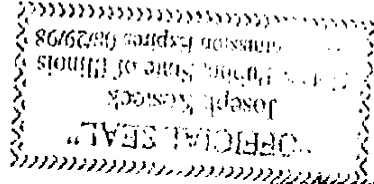 "OFFICIAL SEAL"
Joseph Kosieck
Public, State of Illinois
Expires 08/29/98